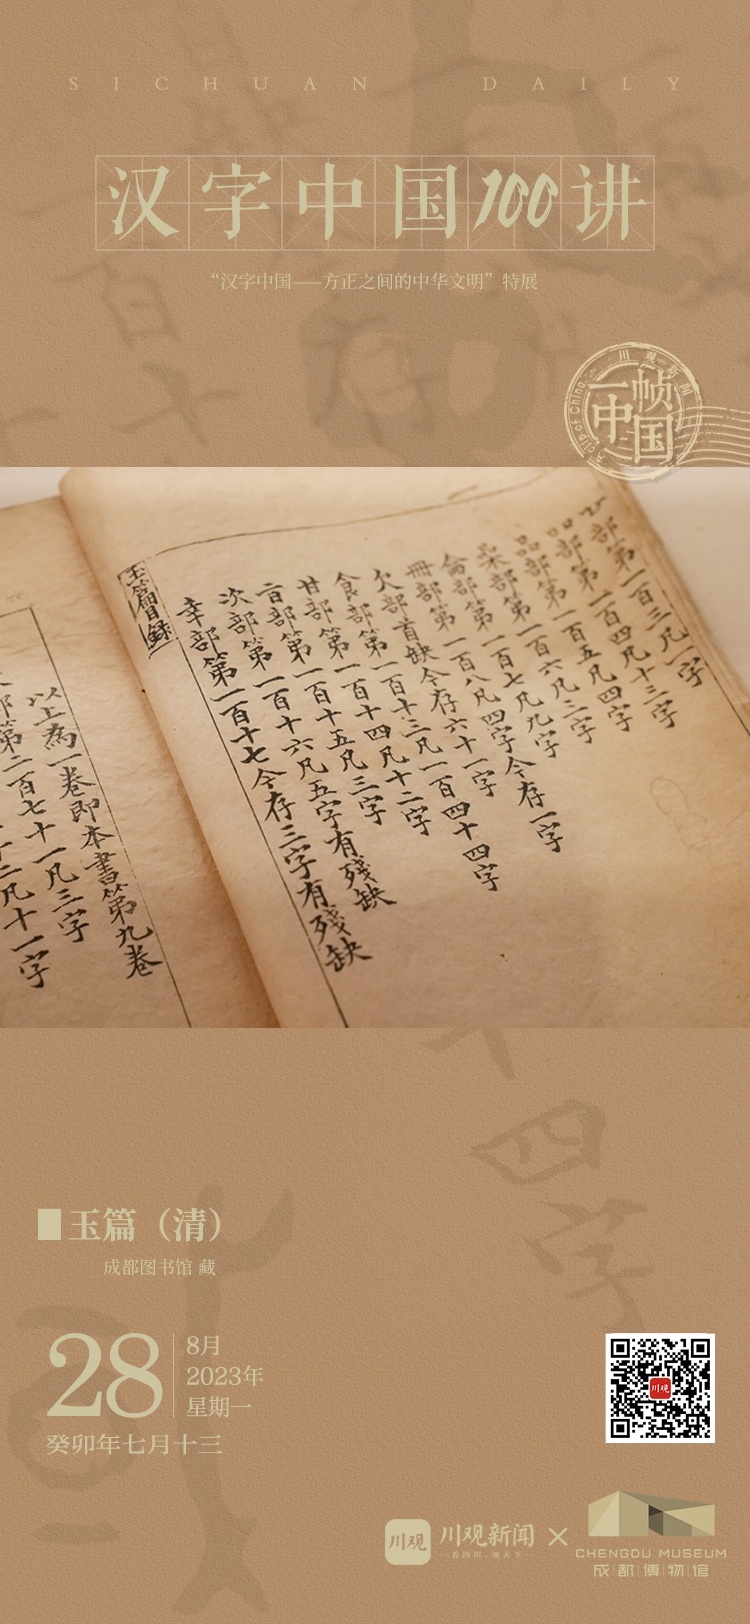 SICHUAN DAILY
汉字中国100讲
“汉字中国——方正之间的中华文明”特展
川观新闻
A Clip of China
一帧
中国
部第一百三凡一字
㗊部第一百四凡十三字
品部第一百五凡四字
喿部第一百六凡三字
龠部第一百七凡九字今存一字
冊部第一百八凡四字
欠部首缺今存六十一字
食部第一百十三凡一百四十四字
甘部第一百十四凡十二字
㫗部第一百十五凡三字
次部第一百十六凡五字有殘缺
幸部第一百十七今存三字有殘缺
玉篇目録
以上為一卷即本書第九卷
部第二百七十一凡三字
二凡十一字
玉篇（清）
成都图书馆 藏
28
8月
2023年
星期一
癸卯年七月十三
川观
川观
川观新闻
×
CHENGDU MUSEUM
成都博物馆